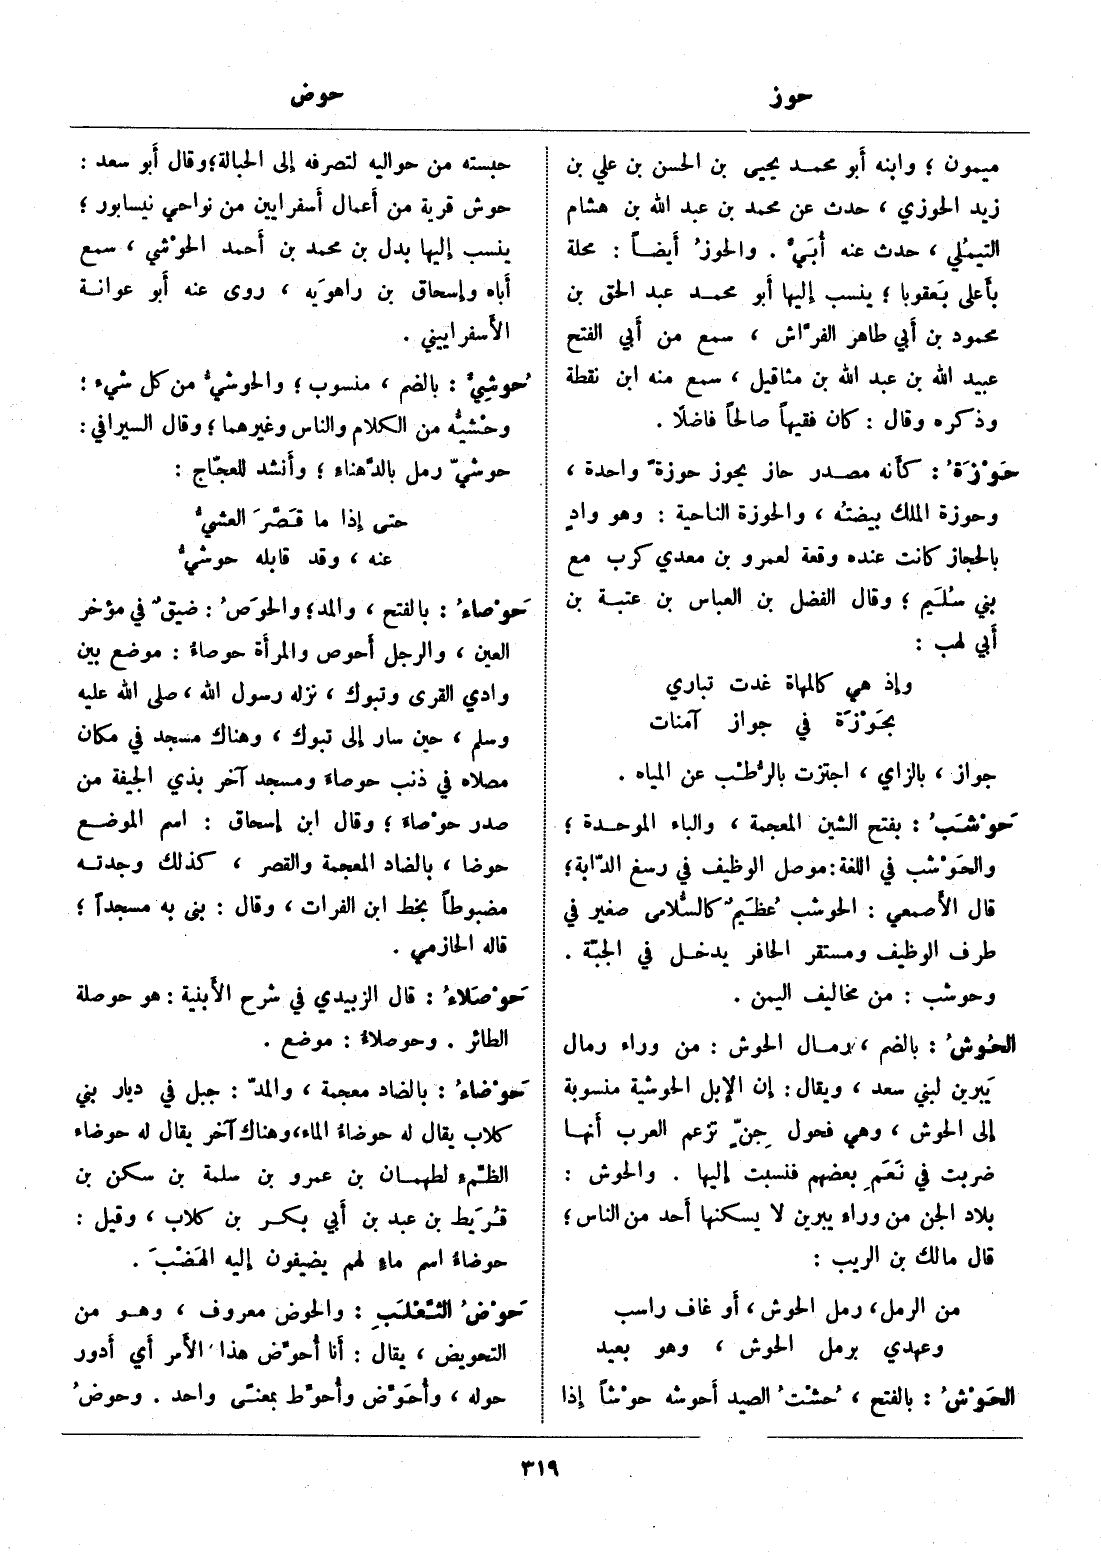 حوز
حوض
ميمون ؛ وابنه أبو محمد يحيى بن الحسن بن علي بن
زيد الحوزي ، حدث عن محمد بن عبد الله بن هشام
التيمُلي ، حدث عنه أُبَيّ . والحوزُ أيضاً : محلة
بأعلى بَعقوبا ؛ ينسب إليها أبو محمد عبد الحق بن
محمود بن أبي طاهر الفرّاش ، سمع من أبي الفتح
عبيد الله بن عبد الله بن مثاقيل ، سمع منه ابن نقطة
وذكره وقال : كان فقيهاً صالحاً فاضلًا .
حَوْزَةُ : كأنه مصدر حاز يحوز حوزةً واحدة ،
وحوزة الملك بيضتُه ، والحوزة الناحية : وهو وادٍ
بالحجاز كانت عنده وقعة لعمرو بن معدي كرب مع
بني سُلَيم ؛ وقال الفضل بن العباس بن عتبة بن
أبي لهب :
وإذ هي كالمهاة غدت تباري
بحَوْزَة في جواز آمنات
جواز ، بالزاي ، اجتزت بالرُطْب عن المياه .
حَوْشَبُ : بفتح الشين المعجمة ، والباء الموحدة ؛
والحَوْشب في اللغة : موصل الوظيف في رسغ الدّابة ؛
قال الأصمعي : الحوشب عُظَيمٌ كالسُّلامى صغير في
طرف الوظيف ومستقر الحافر يدخل في الجبّة .
وحوشب : من مخاليف اليمن .
الحُوشُ : بالضم ، رمال الحوش : من وراء رمال
يَبرين لبني سعد ، ويقال : إن الإبل الحوشية منسوبة
إلى الحوش ، وهي فحول جِنّ تزعم العرب أنها
ضربت في نَعَمِ بعضهم فنسبت إليها . والحوش :
بلاد الجن من وراء يبرين لا يسكنها أحد من الناس ؛
قال مالك بن الريب :
من الرمل ، رمل الحوش ، أو غاف راسب
وعهدي برمل الحوش ، وهو بعيد
الحَوْشُ : بالفتح ، حُشْتُ الصيد أحوشه حوْشاً إذا
حبسته من حواليه لتصرفه إلى الحبالة ؛ وقال أبو سعد :
حوش قرية من أعمال أسفرايين من نواحي نيسابور ؛
ينسب إليها بدل بن محمد بن أحمد الحوْشي ، سمع
أباه وإسحاق بن راهوَيه ، روى عنه أبو عوانة
الأسفراييني .
حُوشِيٌّ : بالضم ، منسوب ؛ والحوشيُّ من كل شيء :
وحْشيُّه من الكلام والناس وغيرهما ؛ وقال السيرافي :
حوشيّ رمل بالدّهناء ؛ وأنشد للعجّاج :
حتى إذا ما قَصَّرَ العشيُّ
عنه ، وقد قابله حوشيُّ
حَوْصاءُ : بالفتح ، والمد ؛ والحوَصُ : ضيقٌ في مؤخر
العين ، والرجل أحوص والمرأة حوصاءُ : موضع بين
وادي القرى وتبوك ، نزله رسول الله ، صلى الله عليه
وسلم ، حين سار إلى تبوك ، وهناك مسجد في مكان
مصلاه في ذنب حوصاءَ ومسجد آخر بذي الجيفة من
صدر حوْصاءَ ؛ وقال ابن إسحاق : اسم الموضع
حوضا ، بالضاد المعجمة والقصر ، كذلك وجدته
مضبوطاً بخط ابن الفرات ، وقال : بنى به مسجداً ؛
قاله الحازمي .
حَوْصَلاءُ : قال الزبيدي في شرح الأبنية : هو حوصلة
الطائر . وحوصلاءُ : موضع .
حَوْضاءُ : بالضاد معجمة ، والمدّ : جبل في ديار بني
كلاب يقال له حوضاءُ الماء ، وهناك آخر يقال له حوضاء
الظّمء لطهمان بن عمرو بن سلمة بن سكن بن
قُرَيط بن عبد بن أبي بكر بن كلاب ، وقيل :
حوضاءُ اسم ماءٍ لهم يضيفون إليه الهَضْبَ .
حَوْضُ الثَّعْلَبِ : والحوض معروف ، وهو من
التحويض ، يقال : أنا أُحوّض هذا الأمر أي أدور
حوله ، وأُحَوّض وأُحوّط بمعنًى واحد . وحوضُ
٣١٩